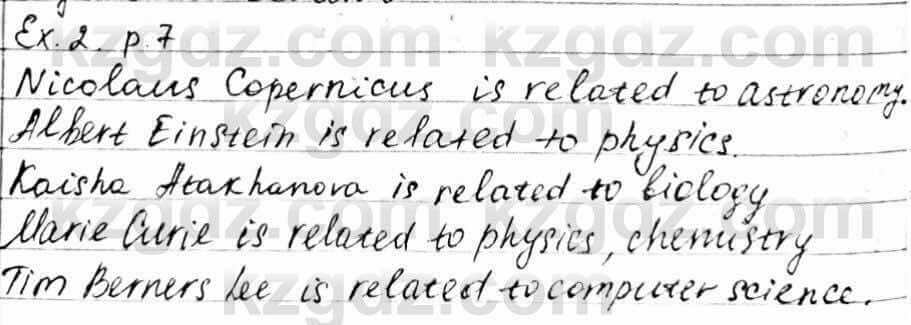 Ex. 2. p. 7
Nicolaus Copernicus is related to astronomy.
Albert Einstein is related to physics.
Kaisha Atakhanova is related to biology
Marie Curie is related to physics, chemistry
Tim Berners Lee is related to computer science.
kzgdz.com kzgdz.com
kzgdz.com kzgdz.com